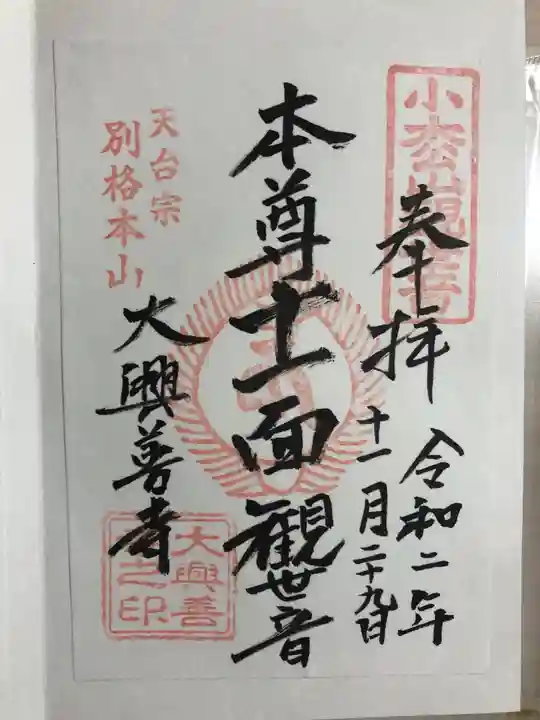 奉拝
令和二年
十一月二十九日
本尊十一面観世音
天台宗
別格本山
大興善寺
大興善
之印